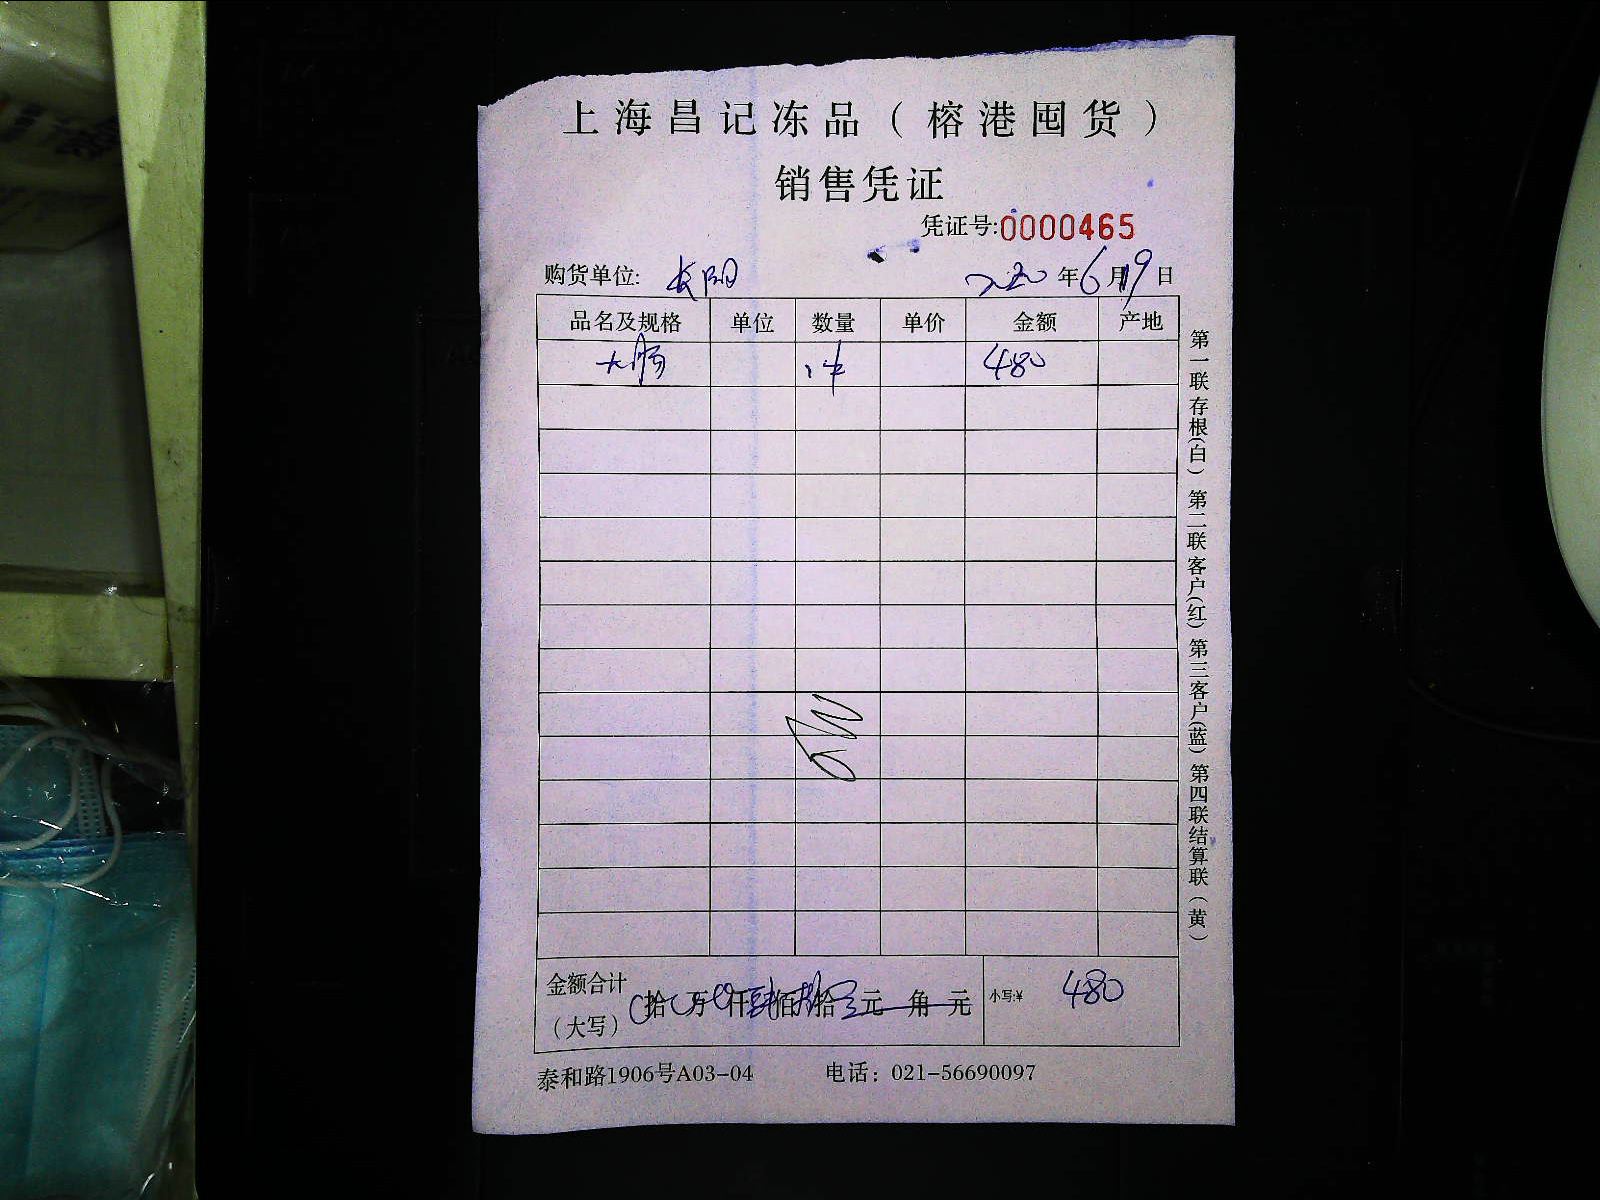 上海昌记冻品（榕港囤货）
销售凭证
凭证号:0000465
购货单位: 长阳 2020年6月19日
品名及规格 单位 数量 单价 金额 产地
大肠 1件 480
金额合计（大写） 拾 万 仟 佰 拾 元 角 元 小写:¥ 480
泰和路1906号A03-04 电话：021-56690097
第一联存根(白) 第二联客户(红) 第三客户(蓝) 第四联结算联(黄)